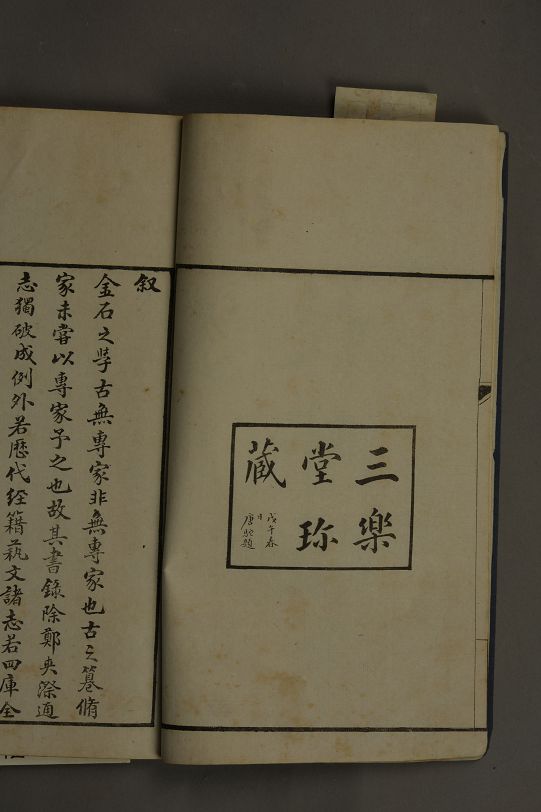 三樂
堂珎
藏
戊午春
日
唐駝題
叙
金石之學古無專家非無專家也古之篹脩
家未嘗以專家予之也故其書錄除鄭夾漈通
志獨破成例外若歷代經籍藝文諸志若四庫全